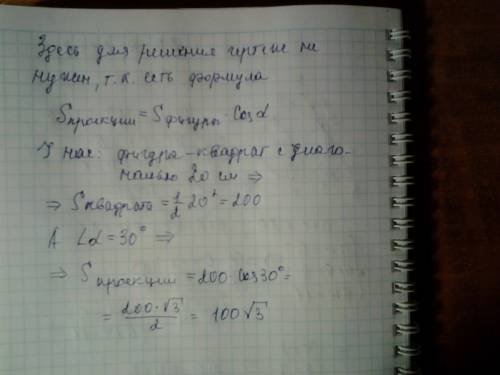 Здесь для решения чертеж не
нужен, т.к. есть формула
Sпроекции = Sфигуры · Cosα
У нас: фигура – квадрат с диаго-
налью 20 см ⇒
⇒ Sквадрата = 1/2 20² = 200
А ∠α = 30° ⇒
⇒ Sпроекции = 200 · Cos30° =
= 200·√3/2 = 100√3